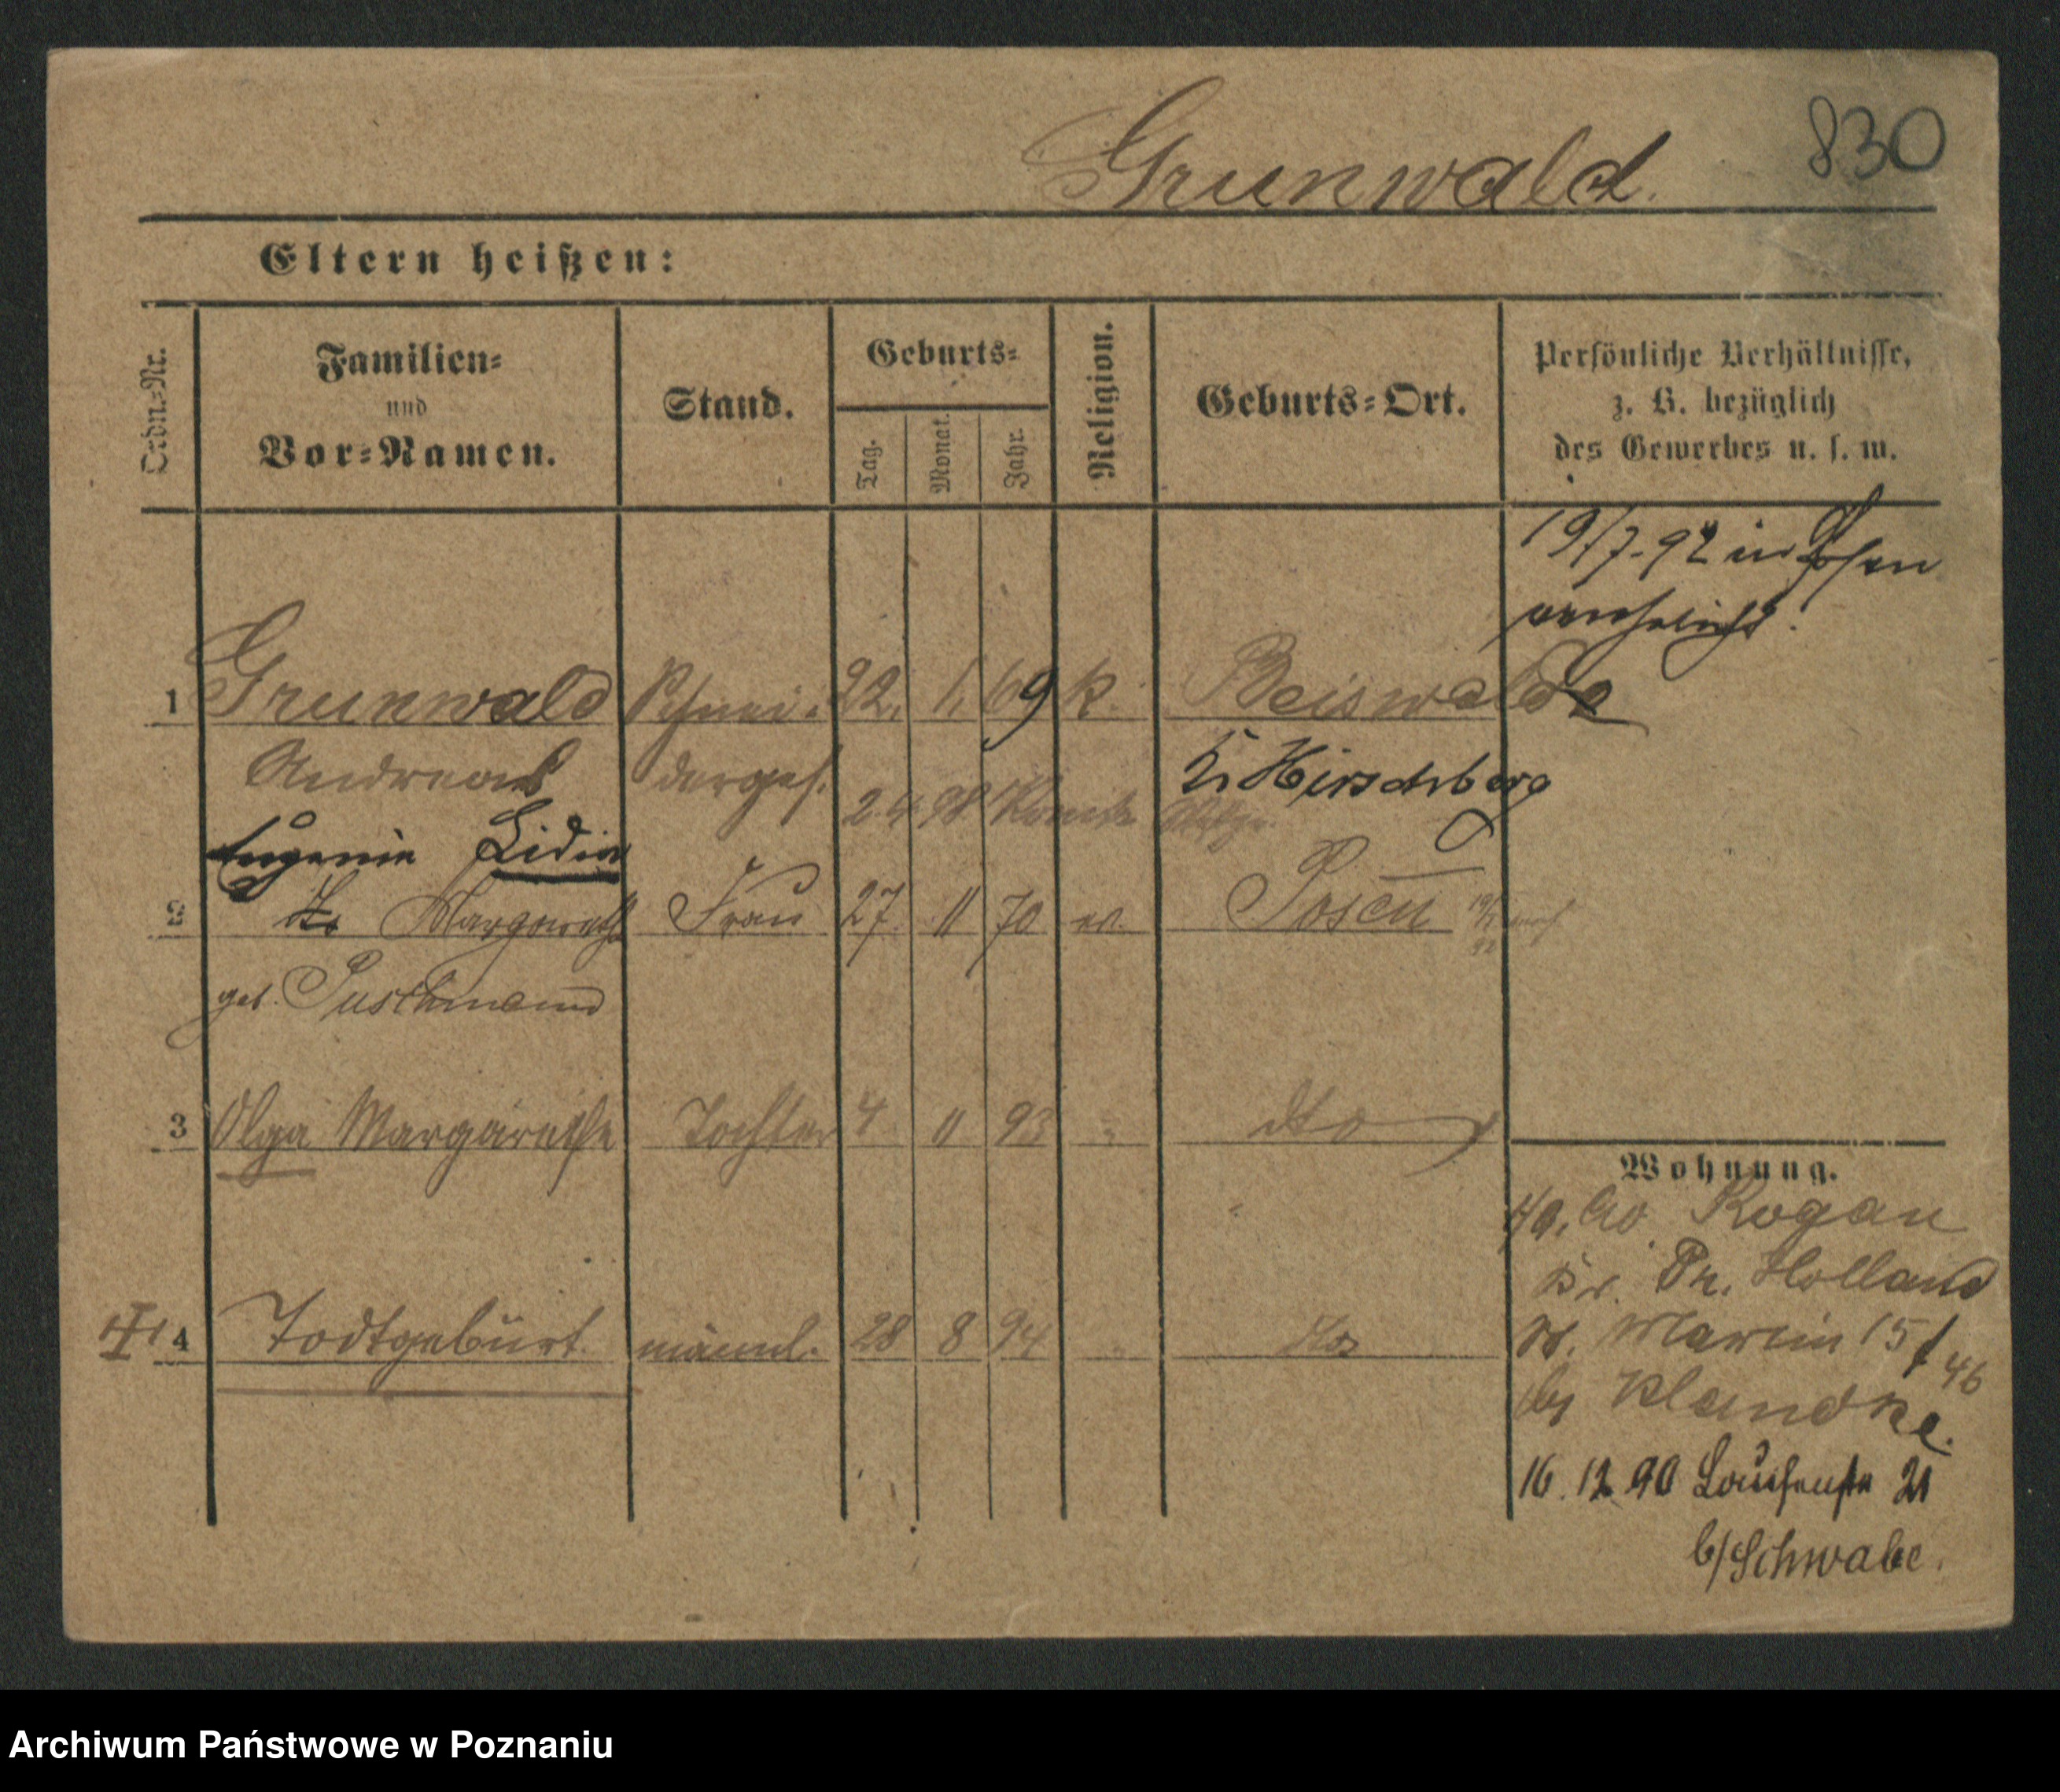 830
Grunwald.
Eltern heißen:
Ordn.-Nr.
Familien-
und
Vor-Namen.
Stand.
Geburts-
Tag.
Monat.
Jahr.
Religion.
Geburts-Ort.
Persönliche Verhältnisse,
z. B. bezüglich
des Gewerbes u. s. w.
19/7.92 in Posen
verehelicht.
1 Grunwald Schnei- 22. 1. 69 k. Beiswalde
Andreas derges. Kr Hirschberg
2.4.98
Eugenie Lidia
2 Margareth Frau 27 11 70 ev. Posen
geb. Puschmann
3 Olga Margarethe Tochter 4 11 93 " dto
Wohnung.
Rogau
Kr. Pr. Holland
4 Todtgeburt. männl. 28 8 94 " dto
St. Martin 15 46
by Klandke.
16.12.90 21
b/Schwabe.
Archiwum Państwowe w Poznaniu